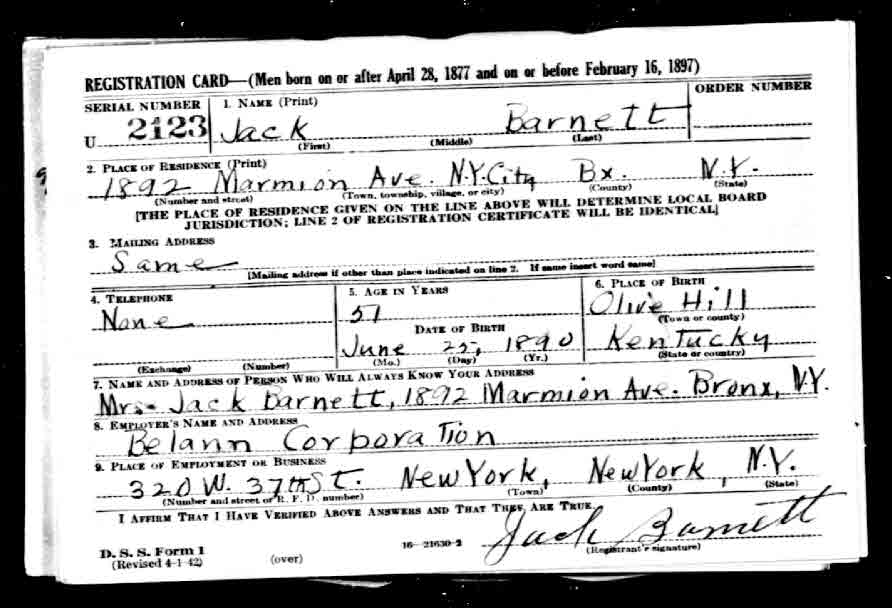 REGISTRATION CARD—(Men born on or after April 28, 1877 and on or before February 16, 1897)
SERIAL NUMBER 1. NAME (Print) ORDER NUMBER
U 2123 Jack Barnett
(First) (Middle) (Last)
2. PLACE OF RESIDENCE (Print)
1892 Marmion Ave. N.Y.City Bx. N.Y.
(Number and street) (Town, township, village, or city) (County) (State)
[THE PLACE OF RESIDENCE GIVEN ON THE LINE ABOVE WILL DETERMINE LOCAL BOARD
JURISDICTION; LINE 2 OF REGISTRATION CERTIFICATE WILL BE IDENTICAL]
3. MAILING ADDRESS
Same
[Mailing address if other than place indicated on line 2. If same insert word same]
4. TELEPHONE 5. AGE IN YEARS 6. PLACE OF BIRTH
None 51 Olive Hill
(Town or county)
DATE OF BIRTH
June 25, 1890 Kentucky
(Exchange) (Number) (Mo.) (Day) (Yr.) (State or country)
7. NAME AND ADDRESS OF PERSON WHO WILL ALWAYS KNOW YOUR ADDRESS
Mrs. Jack Barnett, 1892 Marmion Ave. Bronx, N.Y.
8. EMPLOYER'S NAME AND ADDRESS
Belann Corporation
9. PLACE OF EMPLOYMENT OR BUSINESS
320 W. 37th St. New York, New York, N.Y.
(Number and street or R. F. D. number) (Town) (County) (State)
I AFFIRM THAT I HAVE VERIFIED ABOVE ANSWERS AND THAT THEY ARE TRUE.
Jack Barnett
D. S. S. Form 1 16—21630-2 (Registrant's signature)
(Revised 4-1-42) (over)